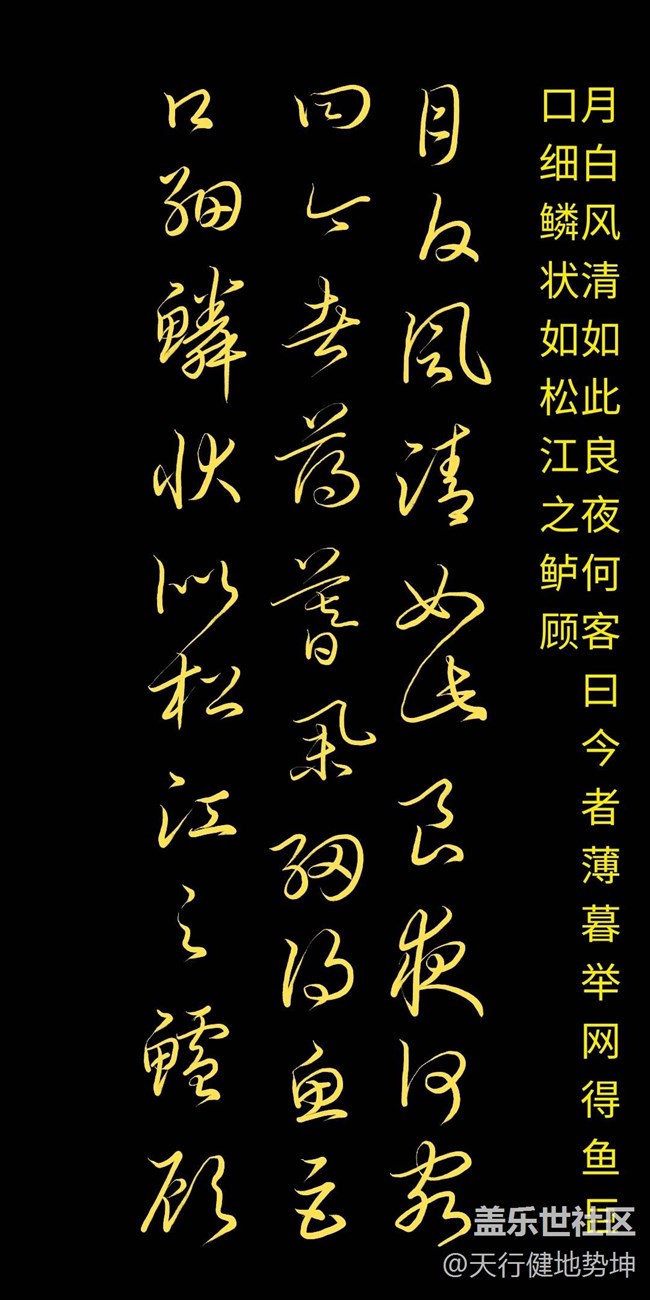 月白风清如此良夜何客曰今者薄暮举网得鱼巨
口细鳞状如松江之鲈顾
月白風清如此良夜何客
曰今者薄暮舉網得魚巨
口細鱗狀似松江之鱸顧
盖乐世社区
@天行健地势坤